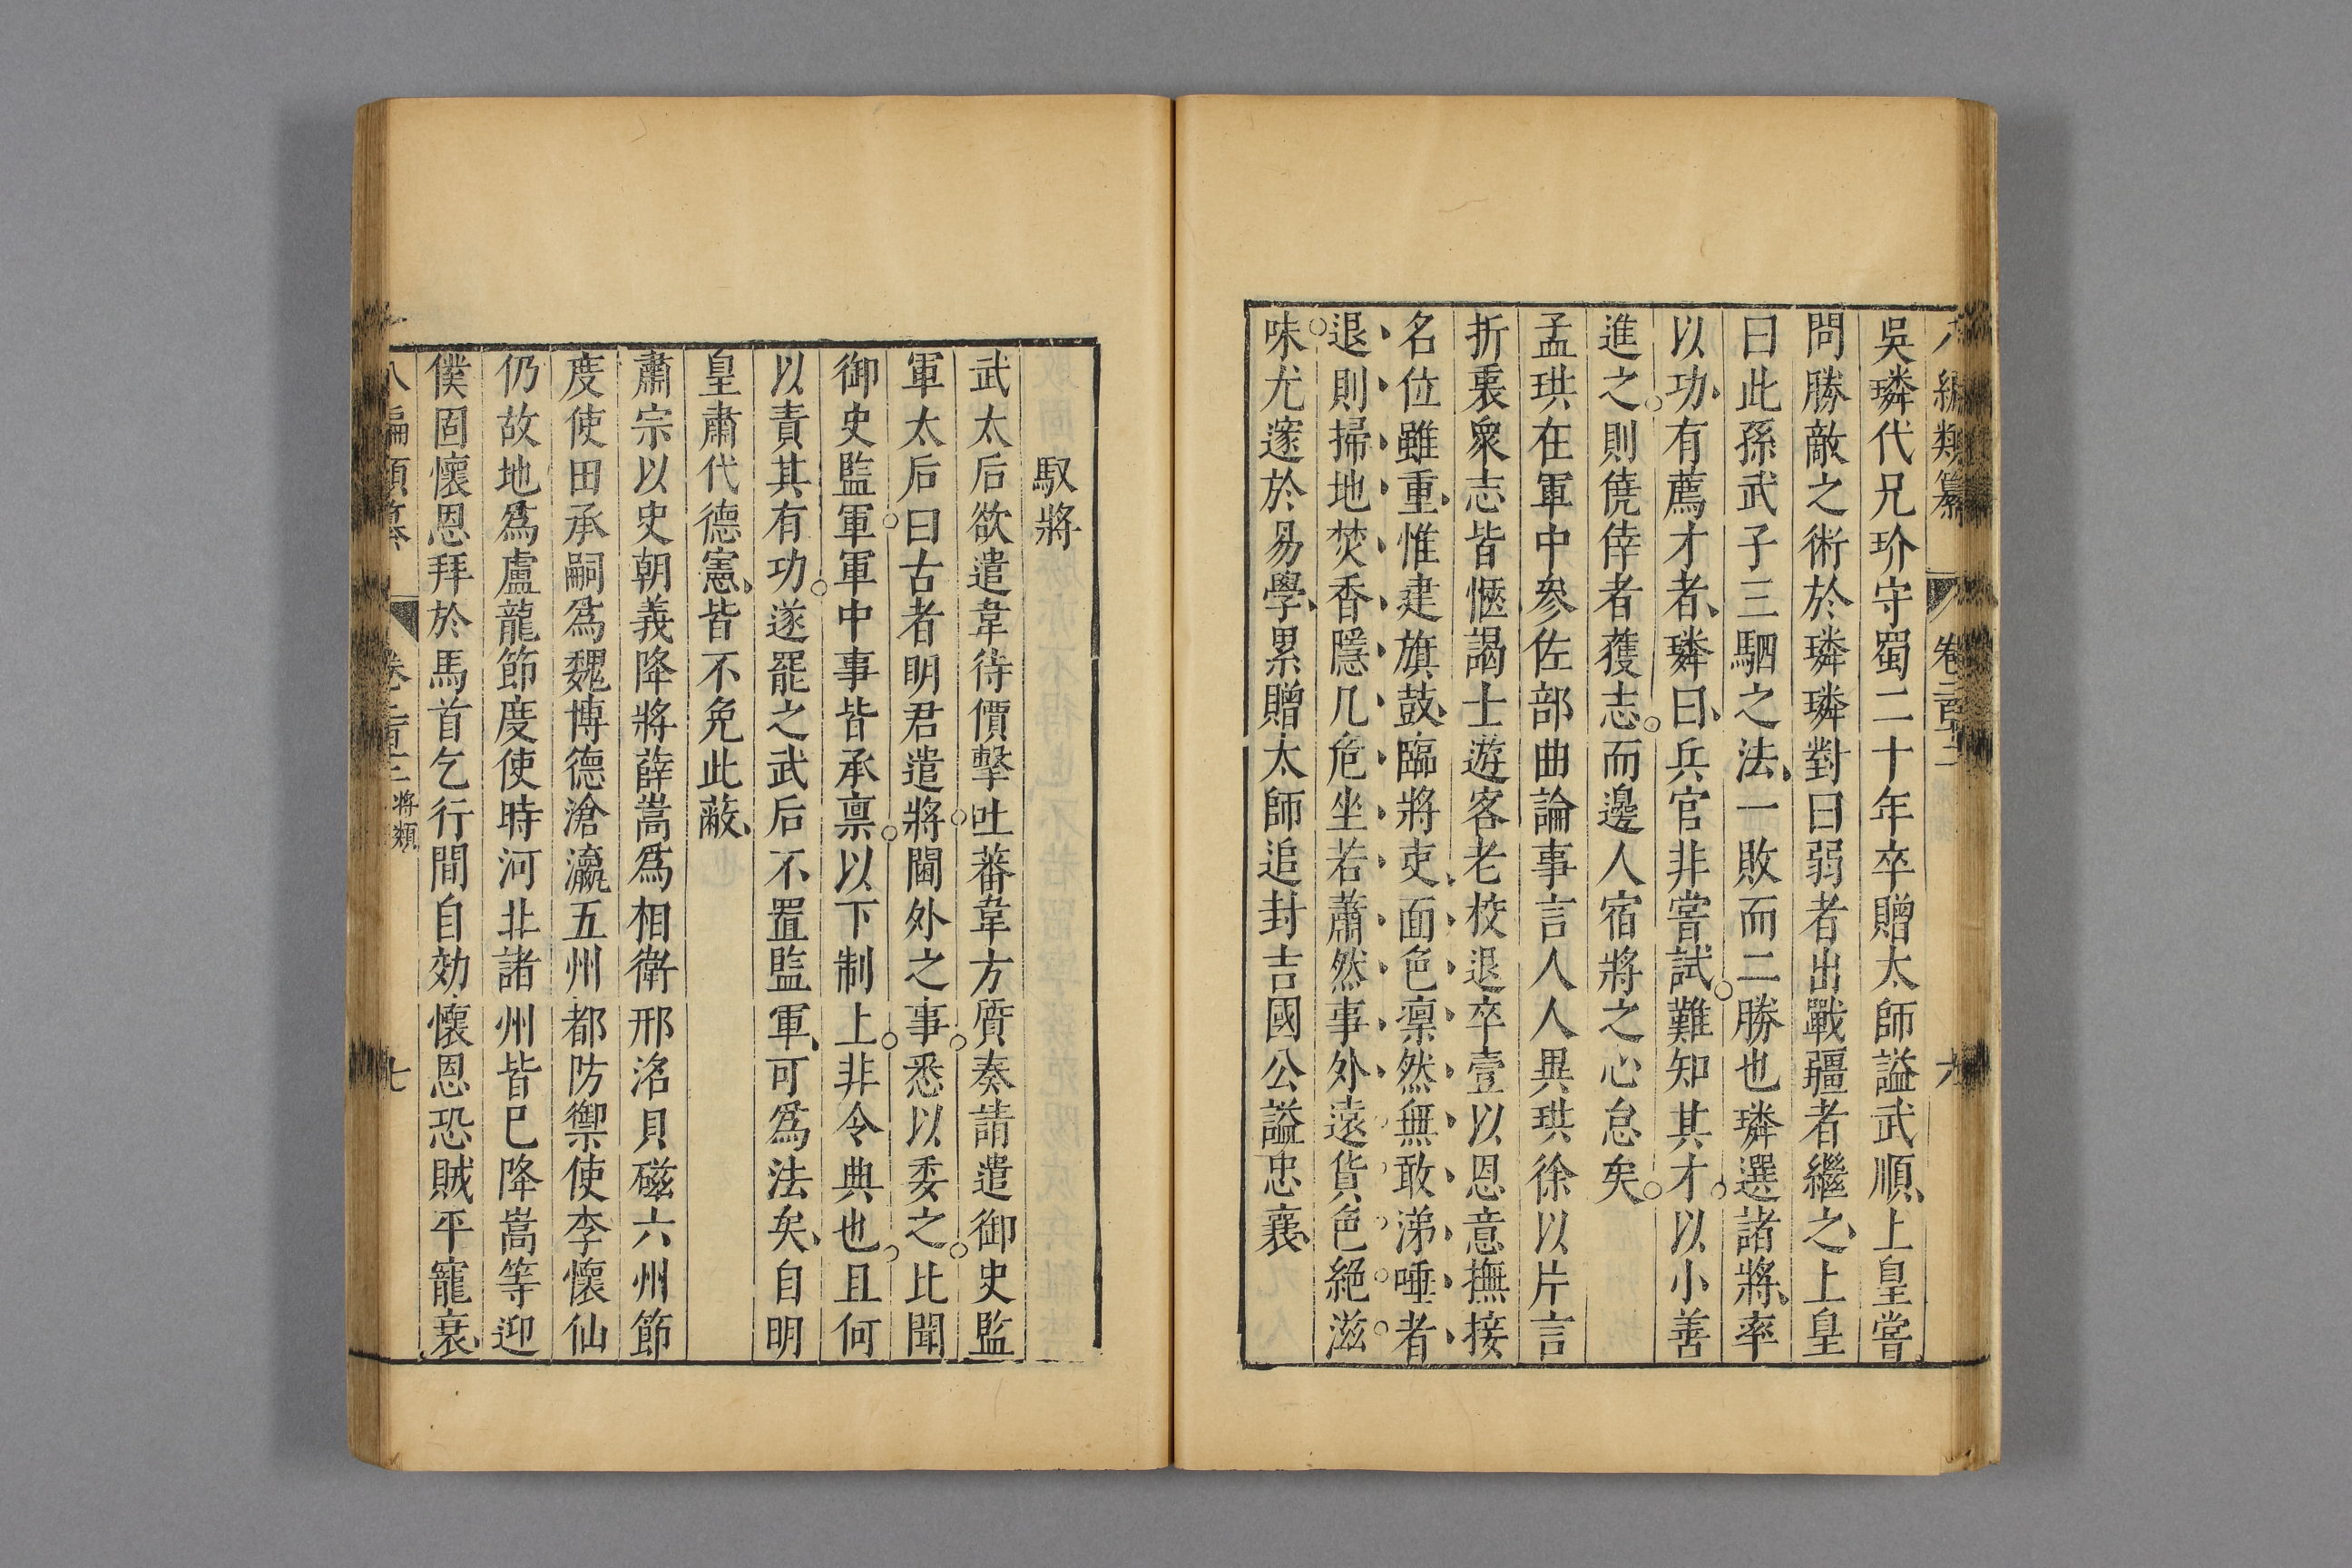 吳璘代兄玠守蜀二十年卒贈太師謚武順上皇嘗
問勝敵之術於璘璘對曰弱者出戰彊者繼之上皇
曰此孫武子三駟之法一敗而二勝也璘選諸將率
以功有薦才者璘曰兵官非嘗試難知其才以小善
進之則僥倖者獲志而邊人宿將之心怠矣
孟珙在軍中參佐部曲論事言人人異珙徐以片言
折衷衆志皆愜謁士遊客老校退卒壹以恩意撫接
名位雖重惟建旗鼓臨將吏面色凛然無敢涕唾者
退則掃地焚香隱几危坐若蕭然事外遠貨色絕滋
味尤邃於易學累贈太師追封吉國公謚忠襄
馭將
武太后欲遣韋待價擊吐蕃韋方質奏請遣御史監
軍太后曰古者明君遣將閫外之事悉以委之比聞
御史監軍軍中事皆承禀以下制上非令典也且何
以責其有功遂罷之武后不置監軍可爲法矣自明
皇肅代德憲皆不免此蔽
肅宗以史朝義降將薛嵩爲相衛邢洺貝磁六州節
度使田承嗣爲魏博德滄瀛五州都防禦使李懷仙
仍故地爲盧龍節度使時河北諸州皆已降嵩等迎
僕固懷恩拜於馬首乞行間自効懷恩恐賊平寵衰
八編類纂 卷二百三 將類 七